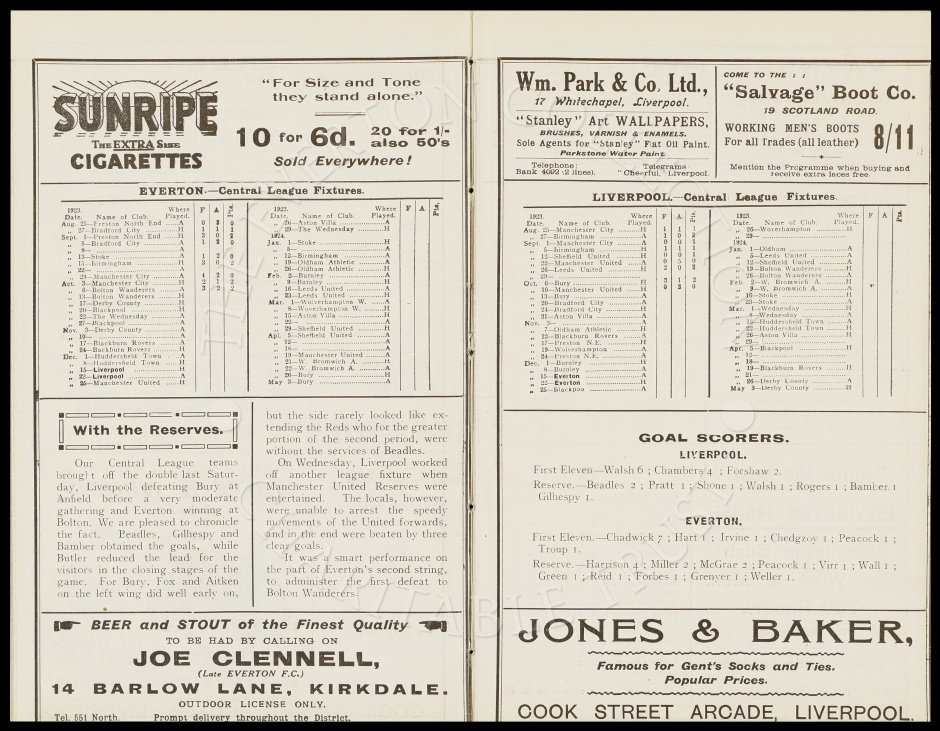 SUNRIPE
THE EXTRA SIZE
CIGARETTES
"For Size and Tone
they stand alone."
10 for 6d. 20 for 1/-
also 50's
Sold Everywhere!
EVERTON.—Central League Fixtures.
1923. Where F A Pts.
Date. Name of Club. Played.
Aug. 25—Preston North End A 0 3 0
„ 27—Bradford City H 1 1 1
Sept. 1—Preston North End H 3 0 2
„ 5—Bradford City A 1 2 0
„ 8—
„ 13—Stoke A 1 2 0
„ 15—Birmingham H
„ 22—
„ 29—Manchester City A 4 2 0
Oct. 3—Manchester City H 2 1 2
„ 6—Bolton Wanderers A 3 2 2
„ 13—Bolton Wanderers H
„ 17—Derby County H
„ 20—Blackpool H
„ 22—The Wednesday A
„ 27—Blackpool A
Nov. 3—Derby County A
„ 10—
„ 17—Blackburn Rovers A
„ 24—Backburn Rovers H
Dec. 1—Huddersfield Town A
„ 8—Huddersfield Town H
„ 15—Liverpool H
„ 22—Liverpool A
„ 25—Manchester United H
1923. Where F A Pts.
Date. Name of Club. Played.
„ 26—Aston Villa A
„ 29—The Wednesday H
1924.
Jan. 1—Stoke H
„ 5—
„ 12—Birmingham A
„ 19—Oldham Athletic H
„ 26—Oldham Athletic A
Feb. 2—Burnley H
„ 9—Burnley A
„ 16—Leeds United A
„ 23—Leeds United H
Mar. 1—Wolverhampton W. A
„ 8—Wolverhampton W. H
„ 15—Aston Villa H
„ 22—
„ 29—Sheffield United A
Apr. 5—Sheffield United H
„ 12—
„ 18—
„ 19—Manchester United A
„ 21—W. Bromwich A. H
„ 22—W. Bromwich A. A
„ 26—Bury H
May 3—Bury A
With the Reserves.
Our Central League teams
brought off the double last Satur-
day, Liverpool defeating Bury at
Anfield before a very moderate
gathering and Everton winning at
Bolton. We are pleased to chronicle
the fact. Beadles, Gilhespy and
Bamber obtained the goals, while
Butler reduced the lead for the
visitors in the closing stages of the
game. For Bury, Fox and Aitken
on the left wing did well early on,
but the side rarely looked like ex-
tending the Reds who for the greater
portion of the second period, were
without the services of Beadles.
On Wednesday, Liverpool worked
off another league fixture when
Manchester United Reserves were
entertained. The locals, however,
were unable to arrest the speedy
movements of the United forwards,
and in the end were beaten by three
clear goals.
It was a smart performance on
the part of Everton's second string,
to administer the first defeat to
Bolton Wanderers.
BEER and STOUT of the Finest Quality
TO BE HAD BY CALLING ON
JOE CLENNELL,
(Late EVERTON F.C.)
14 BARLOW LANE, KIRKDALE.
OUTDOOR LICENSE ONLY.
Tel. 551 North. Prompt delivery throughout the District.
Wm. Park & Co. Ltd.,
17 Whitechapel, Liverpool.
"Stanley" Art WALLPAPERS,
BRUSHES, VARNISH & ENAMELS.
Sole Agents for "Stanley" Flat Oil Paint.
Parkstone Water Paint.
Telephone: Telegrams:
Bank 4092 (2 lines). "Cheerful," Liverpool.
COME TO THE : :
"Salvage" Boot Co.
19 SCOTLAND ROAD.
WORKING MEN'S BOOTS
For all Trades (all leather) 8/11
Mention the Programme when buying and
receive extra laces free.
LIVERPOOL.—Central League Fixtures.
1923. Where F A Pts.
Date. Name of Club. Played.
Aug. 25—Manchester City H 1 1 1
„ 27—Birmingham H 1 0 2
Sept. 1—Manchester City A 0 0 1
„ 5—Birmingham A 1 1 1
„ 12—Sheffield United H 0 1 0
„ 22—Manchester United A 0 5 0
„ 26—Leeds United H 2 0 2
„ 29—
Oct. 6—Bury H 3 1 2
„ 10—Manchester United H 0 3 0
„ 13—Bury A
„ 20—Bradford City A
„ 24—Bradford City H
„ 31—Aston Villa A
Nov. 3—
„ 7—Oldham Athletic H
„ 12—Blackburn Rovers A
„ 17—Preston N.E. H
„ 19—Wolverhampton A
„ 24—Preston N.E. A
Dec. 1—Burnley H
„ 8—Burnley A
„ 15—Everton A
„ 22—Everton H
„ 25—Blackpoo A
1923. Where F A Pts.
Date. Name of Club. Played.
„ 26—Woverhampton H
„ 29—
1924.
Jan. 1—Oldham A
„ 5—Leeds United A
„ 12—Sheffield United A
„ 19—Bolton Wanderers H
„ 26—Bolton Wanderers A
Feb. 2—W. Bromwich A. H
„ 9—W. Bromwich A. A
„ 16—Stoke H
„ 23—Stoke A
Mar. 1—Wednesday H
„ 8—Wednesday A
„ 15—Huddersfield Town H
„ 22—Huddersfield Town A
„ 26—Aston Villa H
„ 29—
Apr. 5—Blackpool H
„ 12—
„ 18—
„ 19—Blackburn Rovers H
„ 21—
„ 26—Derby County A
May 3—Derby County H
GOAL SCORERS.
LIVERPOOL.
First Eleven—Walsh 6 ; Chambers 4 ; Forshaw 2.
Reserve—Beadles 2 ; Pratt 1 ; Shone 1 ; Walsh 1 ; Rogers 1 ; Bamber 1
Gilhespy 1.
EVERTON.
First Eleven—Chadwick 7 ; Hart 1 ; Irvine 1 ; Chedgzoy 1 ; Peacock 1 ;
Troup 1.
Reserve—Harrison 4 ; Miller 2 ; McGrae 2 ; Peacock 1 ; Virr 1 ; Wall 1 ;
Green 1 ; Reid 1 ; Forbes 1 ; Grenyer 1 ; Weller 1.
JONES & BAKER,
Famous for Gent's Socks and Ties.
Popular Prices.
COOK STREET ARCADE, LIVERPOOL.